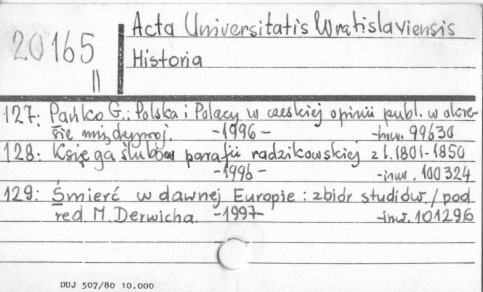 20165
II
Acta Universitatis Wratislaviensis
Historia
127: Pańko G.: Polska i Polacy w czeskiej opinii publ. w okre-
sie międzywoj. -1996- -inw. 99630
128: Księga ślubów parafii radzikowskiej z l. 1801-1850
-1996- -inw. 100324
129: Śmierć w dawnej Europie: zbiór studiów / pod
red. M. Derwicha. -1997- -inw. 101296
DUJ 507/80 10.000